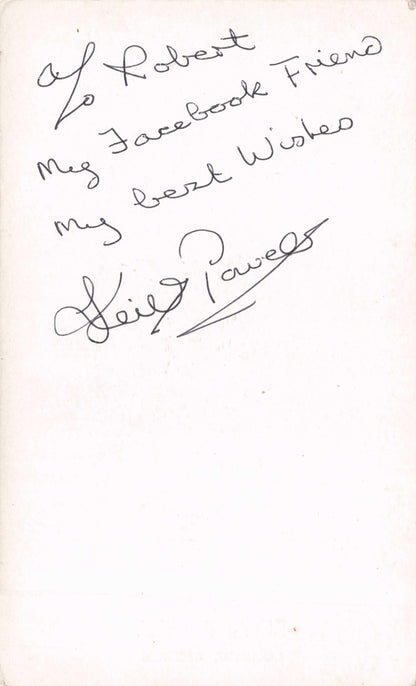 To Robert
My Facebook Friend
My best Wishes
Keith Powell